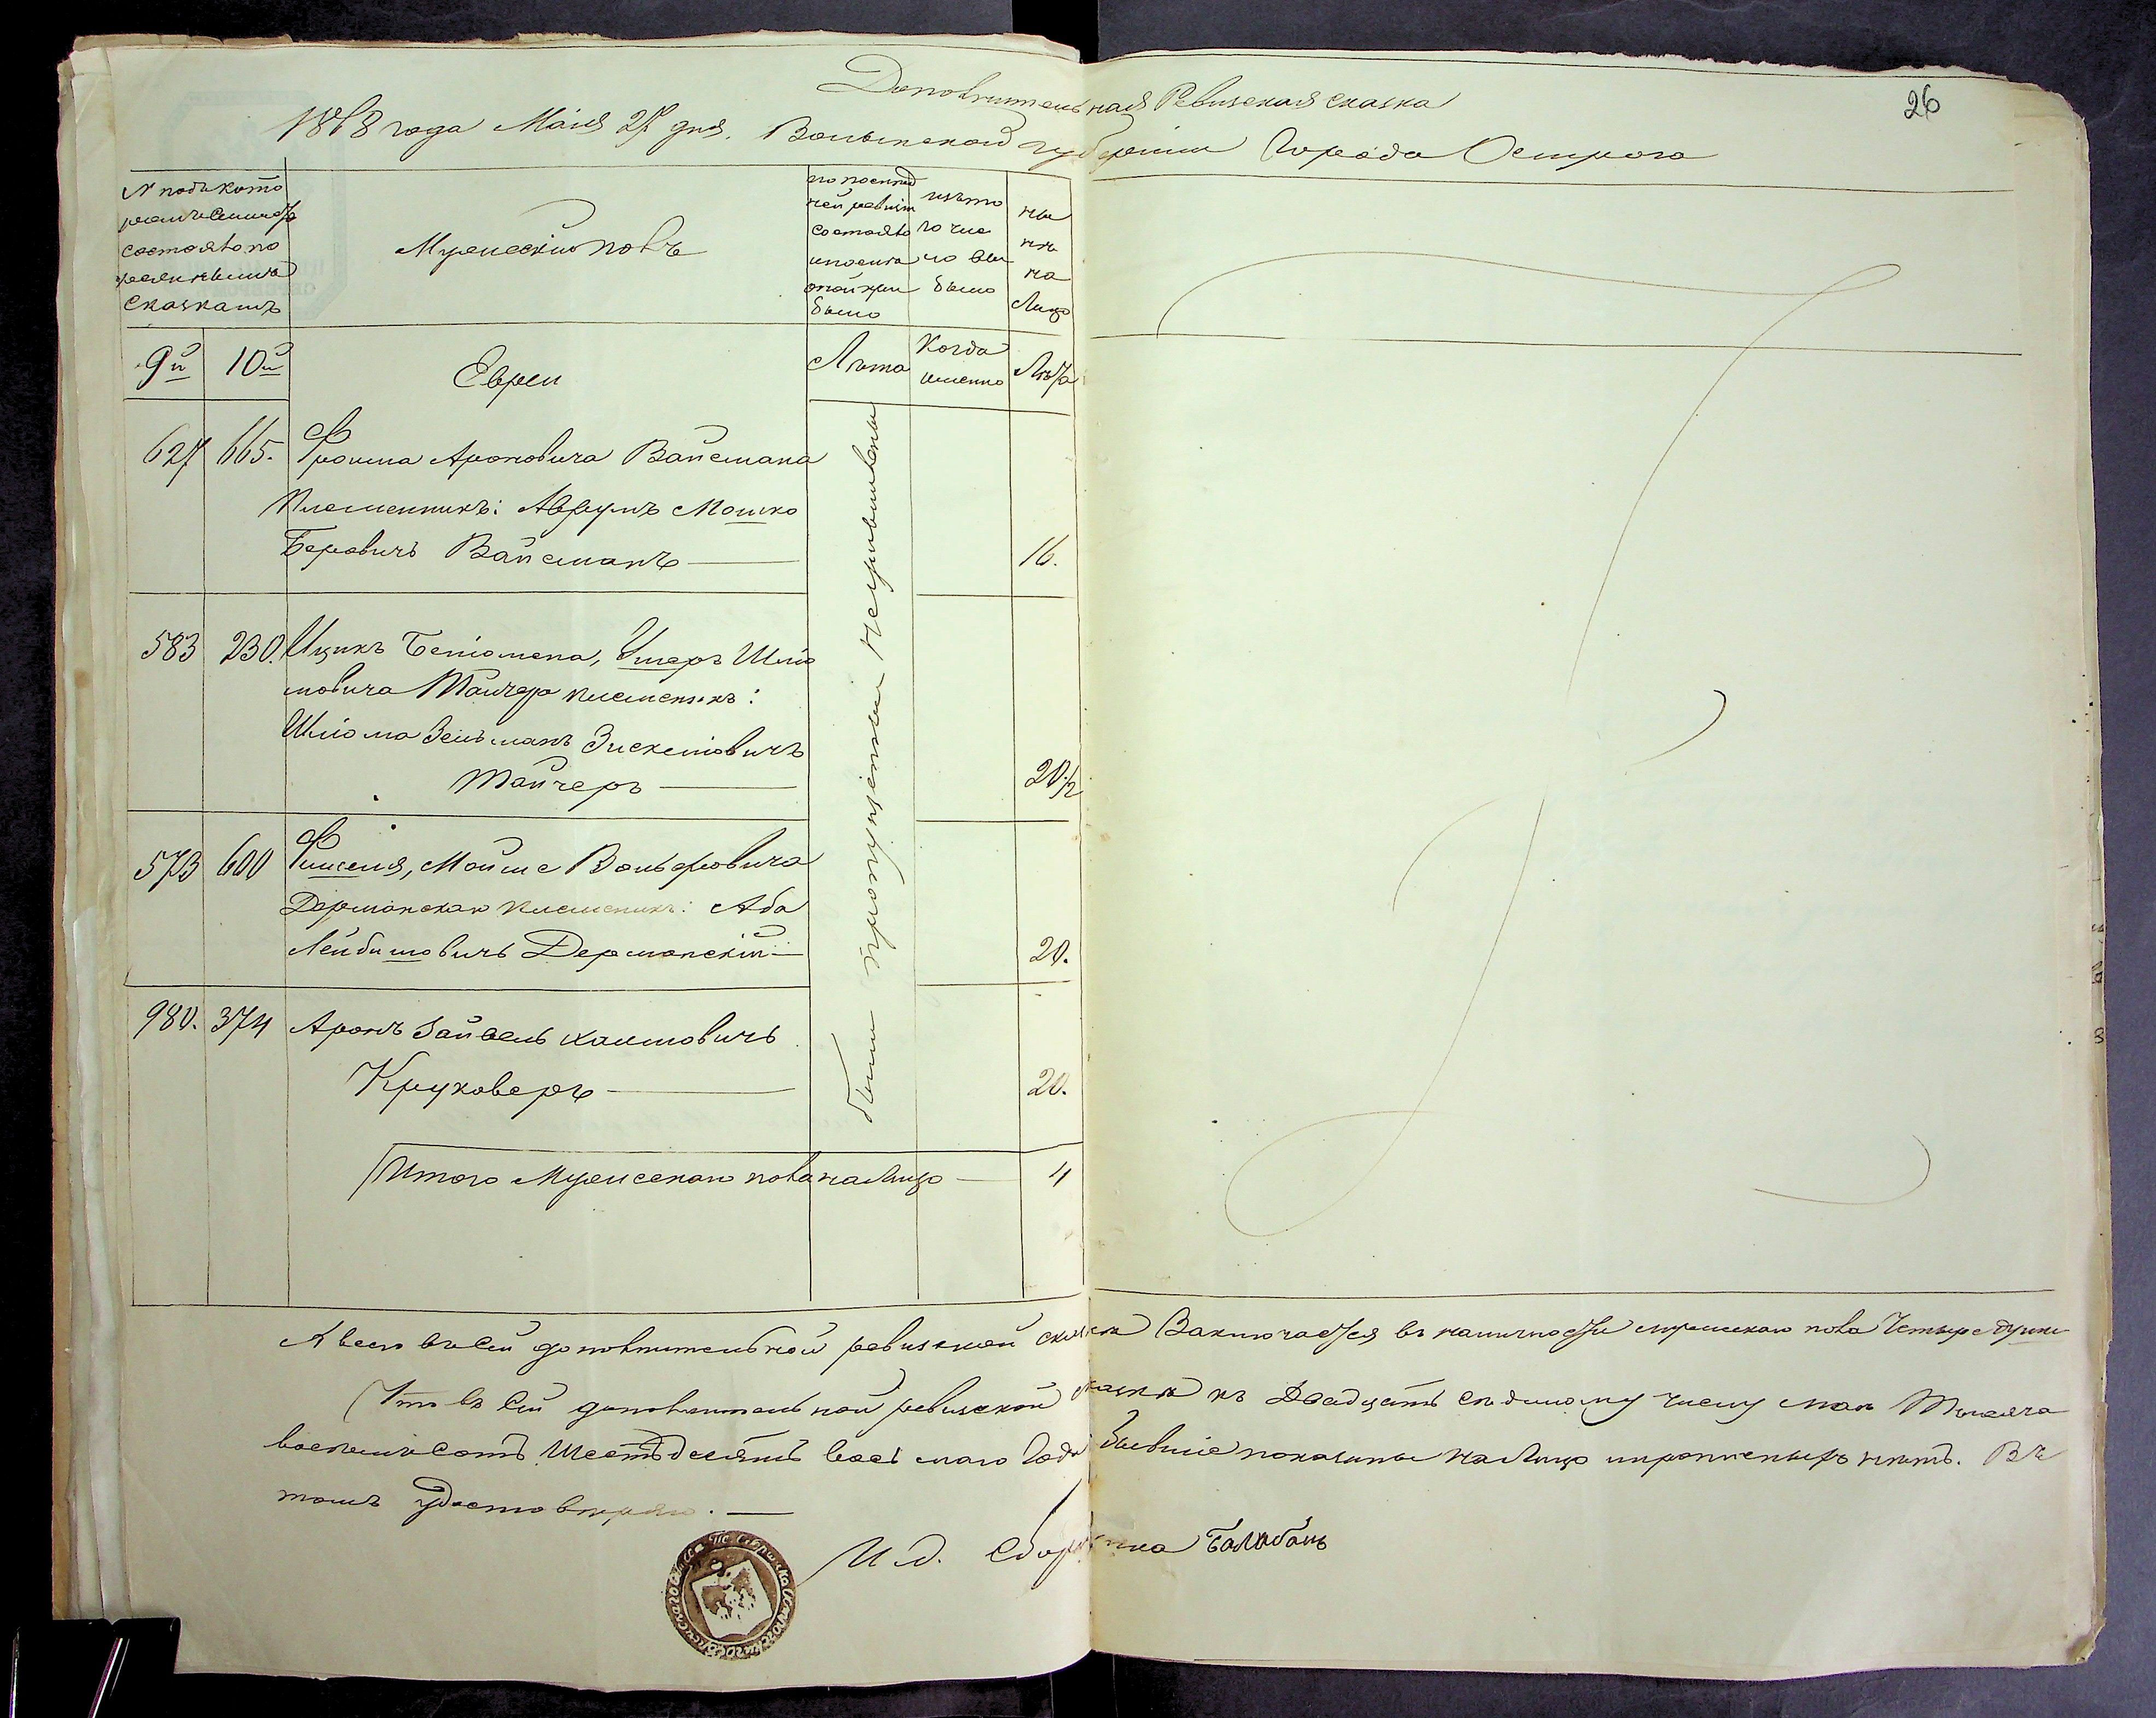 26
Дополнительная Ревизская сказка
1868 года Маія 27 дня. Волынской губерніи Города Острога
№ подъ кото
рымъ семейство
состояло по
ревизскимъ
сказкамъ
Мужескій полъ
по послѣд
ней ревизіи
состояло
и послѣ
оной при
было
изъ то
го чис
ла вы
было
ны
нѣ
на
Лицо
9й
10й
Евреи
Лѣта
Когда
именно
Лѣта
627 665. Фроима Ароновича Вайсмана
Племенникъ: Аврумъ Мошко
Беровичъ Вайсманъ — 16.
583 230. Ицикъ Беніомена, Умеръ Шліо
мовича Тайчера племеникъ:
Шліома Зельманъ Зискелiовичъ
Тайчеръ — 20½
573 600 Фишеля, Мойше Вольфовича
Дерманскаго племеникъ: Аба
Лейбишовичъ Дерманскій — 20.
980. 374 Аронъ Зайвель Хаимовичъ
Круховеръ — 20.
были пропущенными неприписаны
Итого Мужескаго пола на Лицо — 4
А всего въ сей дополнительной ревизской сказкѣ Заключается въ наличности мужескаго пола Четыре души
Что въ сей дополнительной ревизской сказкѣ къ Двадцать седьмому числу мая Тысяча
восемьсотъ Шестьдесятъ восьмаго Года бывшіе показаны на Лицо и прописныхъ нѣтъ. Въ
томъ удостовѣряю. —
И. д. Сборщика Балабанъ